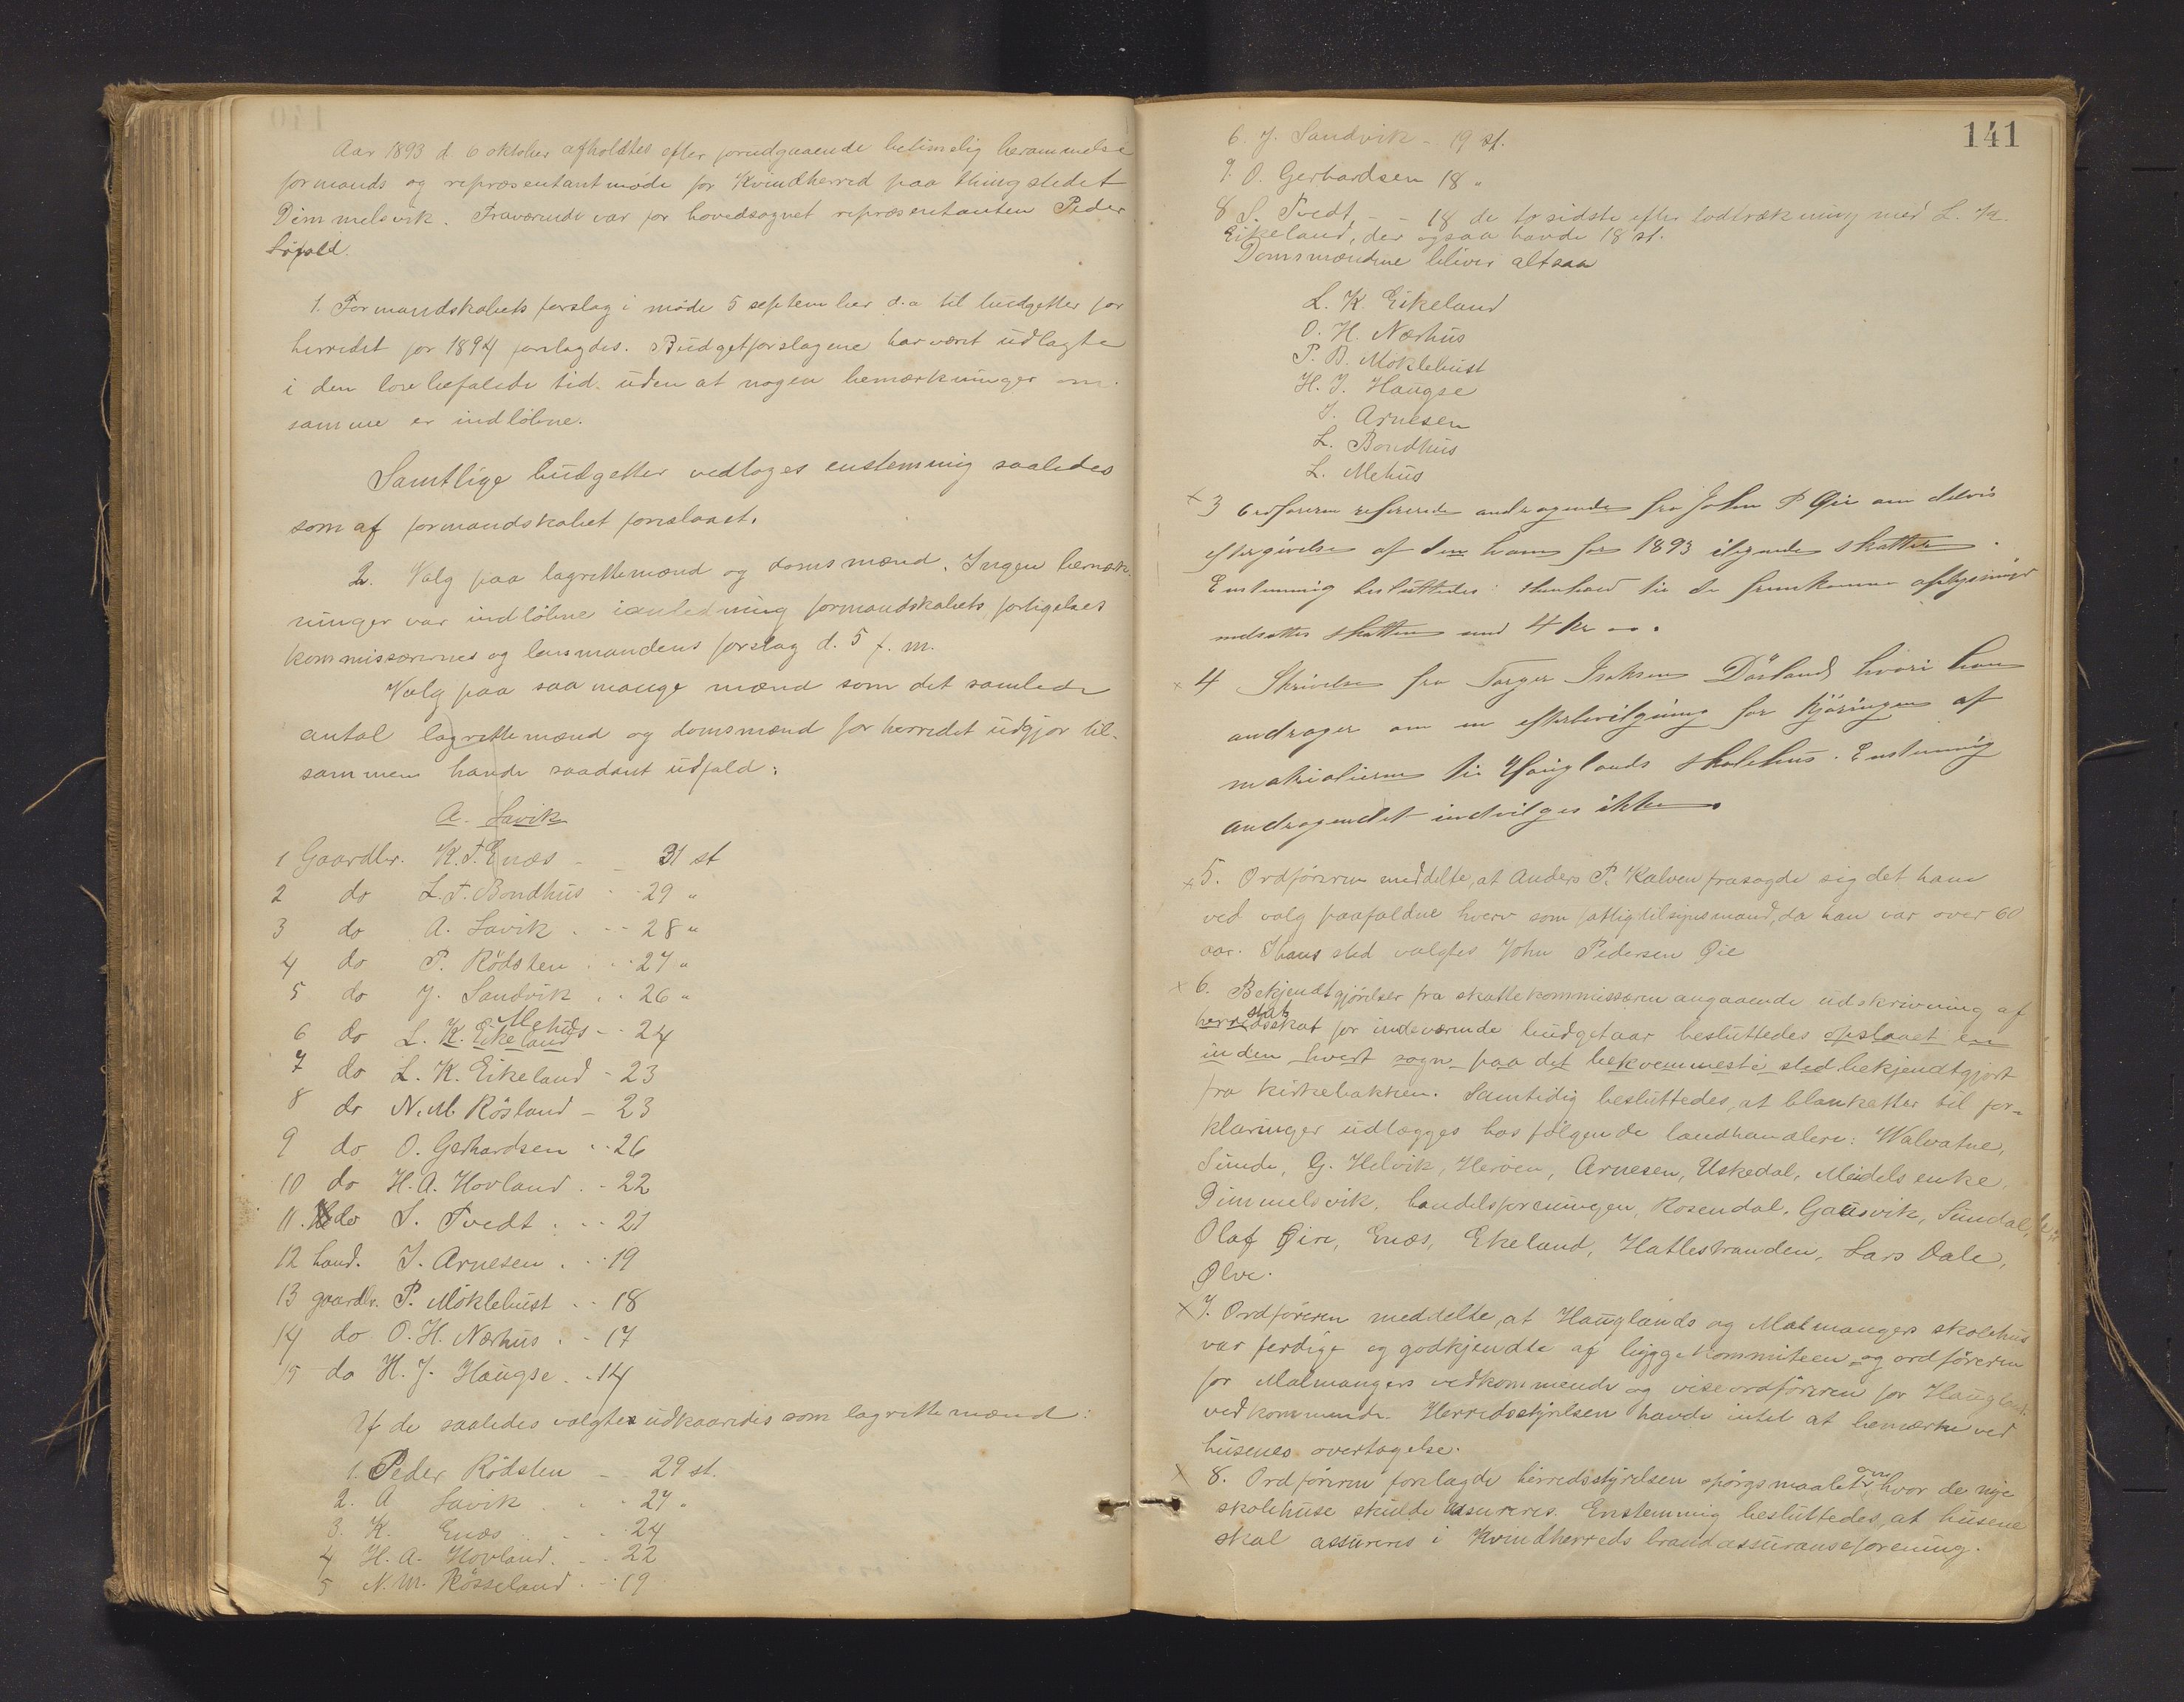 Aar 1893 d. 6 oktober afholdtes efter forudgaaende betimelig berammelse
formands og repræsentantmøde for Kvindherred paa thingstedet
Dimmelsvik. Fraværende var for hovedsognet repræsentanten Peder
Løfald.
1. Formandskabets forslag i møde 5 september d.a til budgetter for
herredet for 1894 forelagdes. Budgetforslagene har været udlagte
i den lovbefalede tid uden at nogen bemærkninger om
samme er indløbne.
Samtlige budgetter vedtoges enstemmig saaledes
som af formandskabet foreslaaet.
2. Valg paa lagrettemænd og domsmænd. Ingen bemærk-
ninger var indløbne ianledning formandskabets, forligelses
kommissærernes og lensmandens forslag d. 5 f. m.
Valg paa saa mange mænd som det samlede
antal lagrettemænd og domsmænd for herredet udgjør til-
sammen havde saadant udfald:
A. Savik
1 Gaardbr. K. T. Enæs - - 31 st
2 do L. T. Bondhus - - 29 "
3 do A. Savik . - - 28 "
4 do P. Rødsten . . . 27 "
5 do J. Sandvik . . 26 "
6 do L. K. Eikeland Mehus - - 24
7 do L. K. Eikeland - 23
8 do N. M. Røsland - 23
9 do O. Gerhardsen - - 26
10 do H. A. Hovland . - 22
11. do S. Tvedt . . - 21
12 hand. J. Arnesen . . - 19
13 gaardbr. P. Møklebust . . 18
14 do O. H. Nærhus . - 17
15 do H. J. Haugse . . 14
Af de saaledes valgte udkaaredes som lagrettemænd:
1. Peder Rødsten - 29 st.
2. A Savik . . . 27 "
3. K. Enæs . . . 24
4 H. A. Hovland . . . 22
5 N. M. Røsseland . . . 19
141
6. J. Sandvik - 19 st.
7. O. Gerhardsen 18 "
8 S. Tvedt, - - 18 de to sidste efter lodtrækning med L. K.
Eikeland, der ogsaa havde 18 st.
Domsmændene bliver altsaa
L. K. Eikeland
O. H. Nærhus
P. B. Møklebust
H. J. Haugse
J. Arnesen
L. Bondhus
L. Mehus
x 3 Ordføreren refererede andragende fra John P Øie om delvis
eftergivelse af den ham for 1893 ilignede skatter.
Enstemmig besluttedes: Henhold til de fremkomne oplysninger
nedsættes skatten med 4 kr.
x 4 Skrivelse fra Torger Isaksen Døsland hvori han
andrager om en efterbevilgning for Kjøringen af
materialierne til Hauglands skolehus. Enstemmig
andragendet indvilges ikke.
x 5. Ordføreren meddelte, at Anders P. Kalven frasagde sig det ham
ved valg paafaldne hverv som fattigtilsynsmand, da han var over 60
aar. I hans sted valgtes John Pedersen Øie
x 6. Bekjendtgjørelser fra skattekommissæren angaaende udskrivning af
herredsskat stats for indeværende budgetaar besluttedes opslaaet en
inden hvert sogn paa det bekvemmeste sted bekjendtgjort
fra kirkebakken. Samtidig besluttedes, at blanketter til for-
klaringer udlægges hos følgende landhandlere: Walvatne,
Sunde, G. Helvik, Herøen, Arnesen, Uskedal, Meidels enke,
Dimmelsvik, handelsforeningen, Rosendal, Gausvik, Sundal,
Olaf Øire, Enæs, Ekeland, Hatlestranden, Lars Dale,
Ølve.
x 7. Ordføreren meddelte, at Hauglands og Malmanger skolehus
var ferdige og godkjendte af byggekommiteen og ordføreren
for Malmangers vedkommende og viseordføreren for Hauglands
vedkommende. Herredsstyrelsen havde intet at bemærke ved
husenes overtagelse.
x 8. Ordføreren forelagde herredsstyrelsen spørgsmaalet om, hvor de nye
skolehuse skulde assureres. Enstemmig besluttedes, at husene
skal assureres i Kvindherreds brandassuranseforening.